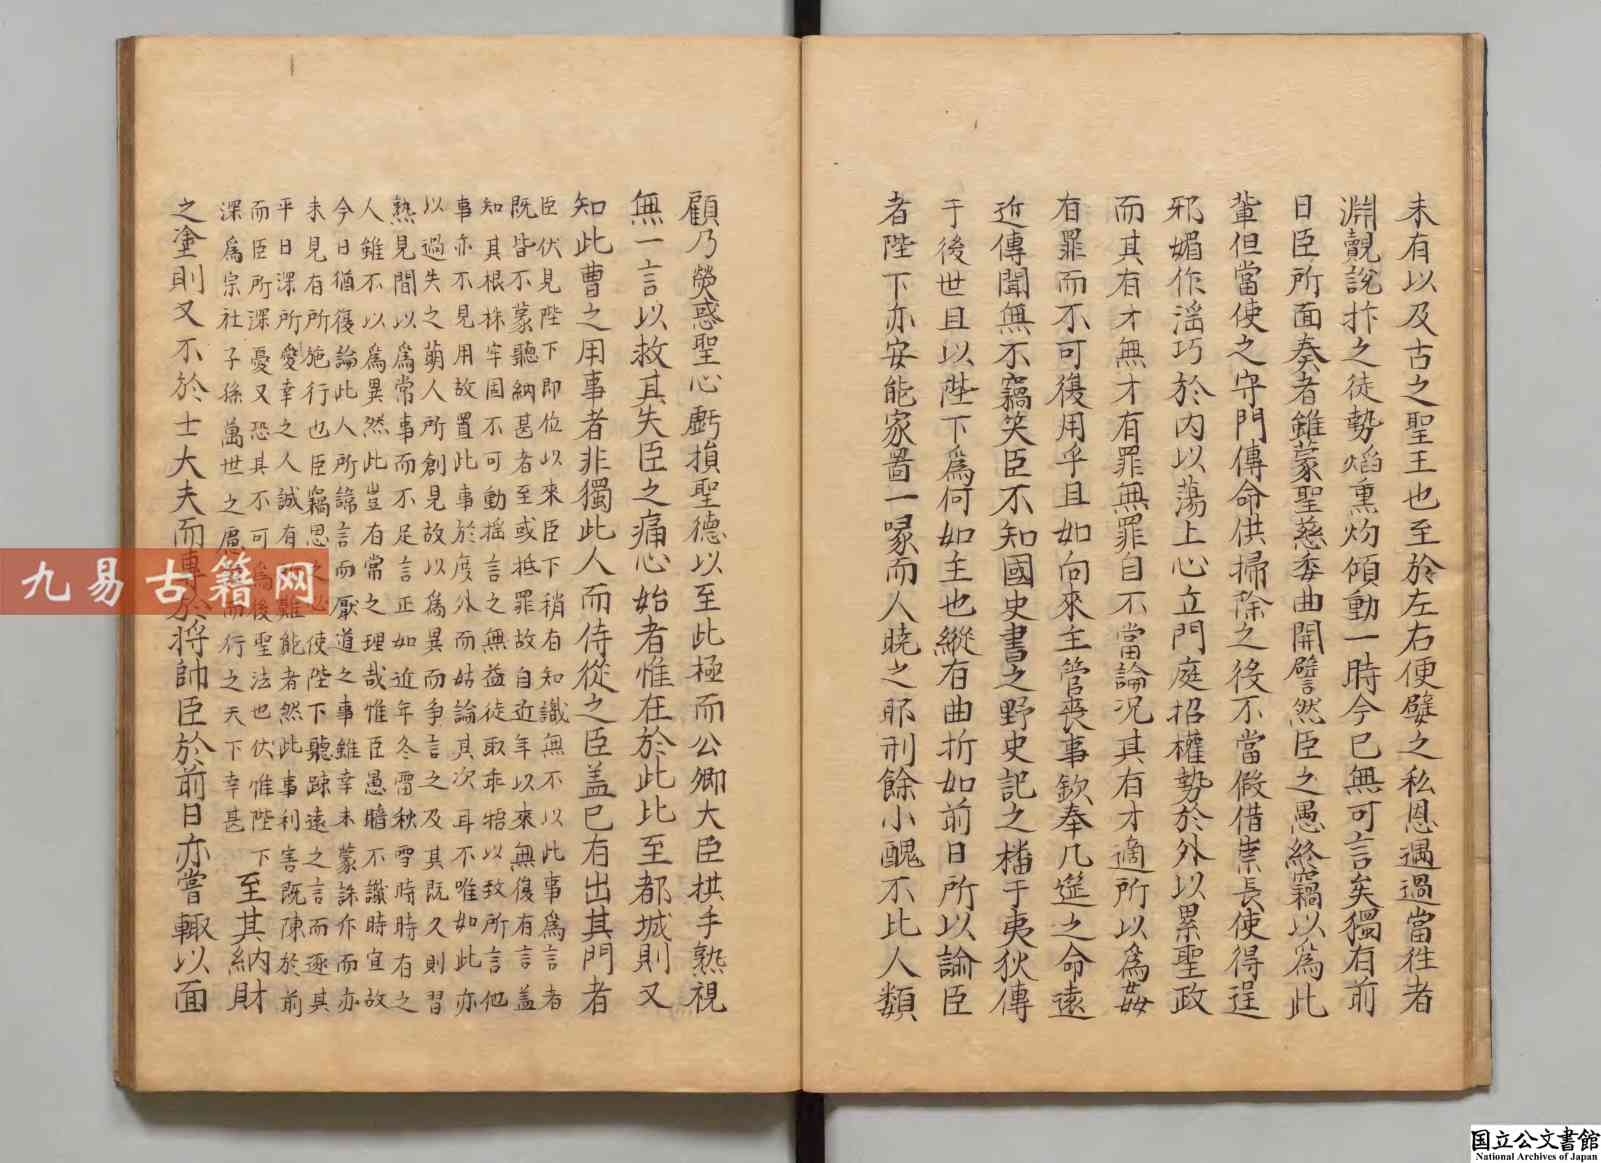 未有以及古之聖王也至於左右便嬖之私恩遇過當徃者
淵覿說抃之徒勢焰熏灼傾動一時今已無可言矣獨有前
日臣所面奏者雖蒙聖慈委曲開譬然臣之愚終竊以為此
輩但當使之守門傳命供掃除之役不當假借崇長使得逞
邪媚作滛巧於內以蕩上心立門庭招權勢於外以累聖政
而其有才無才有罪無罪自不當論况其有才適所以為姦
有罪而不可復用乎且如向來主管喪事欽奉几筵之命遠
近傳聞無不竊笑臣不知國史書之野史記之播于夷狄傳
于後世且以陛下為何如主也縱有曲折如前日所以諭臣
者陛下亦安能家啚一喙而人曉之耶刑餘小醜不比人類
顧乃熒惑聖心虧損聖德以至此極而公卿大臣拱手熟視
無一言以救其失臣之痛心始者惟在於此比至都城則又
知此曹之用事者非獨此人而侍從之臣盖已有出其門者
臣伏見陛下即位以來臣下稍有知識無不以此事為言者
既皆不蒙聽納甚者至或抵罪故自近年以來無復有言盖
知其根株牢固不可動搖言之無益徒取乖牾以致所言他
事亦不見用故置此事於度外而姑論其次耳不唯如此亦
以過失之萌人所創見故以為異而争言之及其既久則習
熟見聞以為常事而不足言正如近年冬雷秋雪時時有之
人雖不以為異然此豈有常之理哉惟臣愚瞻不識時宜故
今日猶復論此人所諦言而厭道之事雖幸未蒙誅斥而亦
未見有所施行也臣竊思之必使陛下聽踈遠之言而逐其
平日深所愛幸之人誠有所難能者然此事利害既陳於前
而臣所深憂又恐其不可為後聖法也伏惟陛下
深為宗社子孫萬世之慮而行之天下幸甚 至其納財
之塗則又不於士大夫而專於將帥臣於前日亦嘗輙以面
九易古籍网
国立公文書館
National Archives of Japan